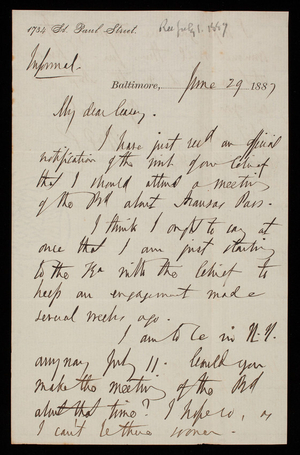 1734 St. Paul Street.
Rec July 1. 1887
Informal.
Baltimore, June 29 1887
My dear Casey.
I have just rec'd an official
notification of the wish of our Chief
that I should attend a meeting
of the Bd about Aransas Pass.
I think I ought to say at
once that I am just starting
to the with the Chief to
keep an engagement made
several weeks ago.
I am to be in N.Y.
anyway July 11. Could you
make the meeting of the Bd
about that time? I hope so, as
I can't be there sooner.